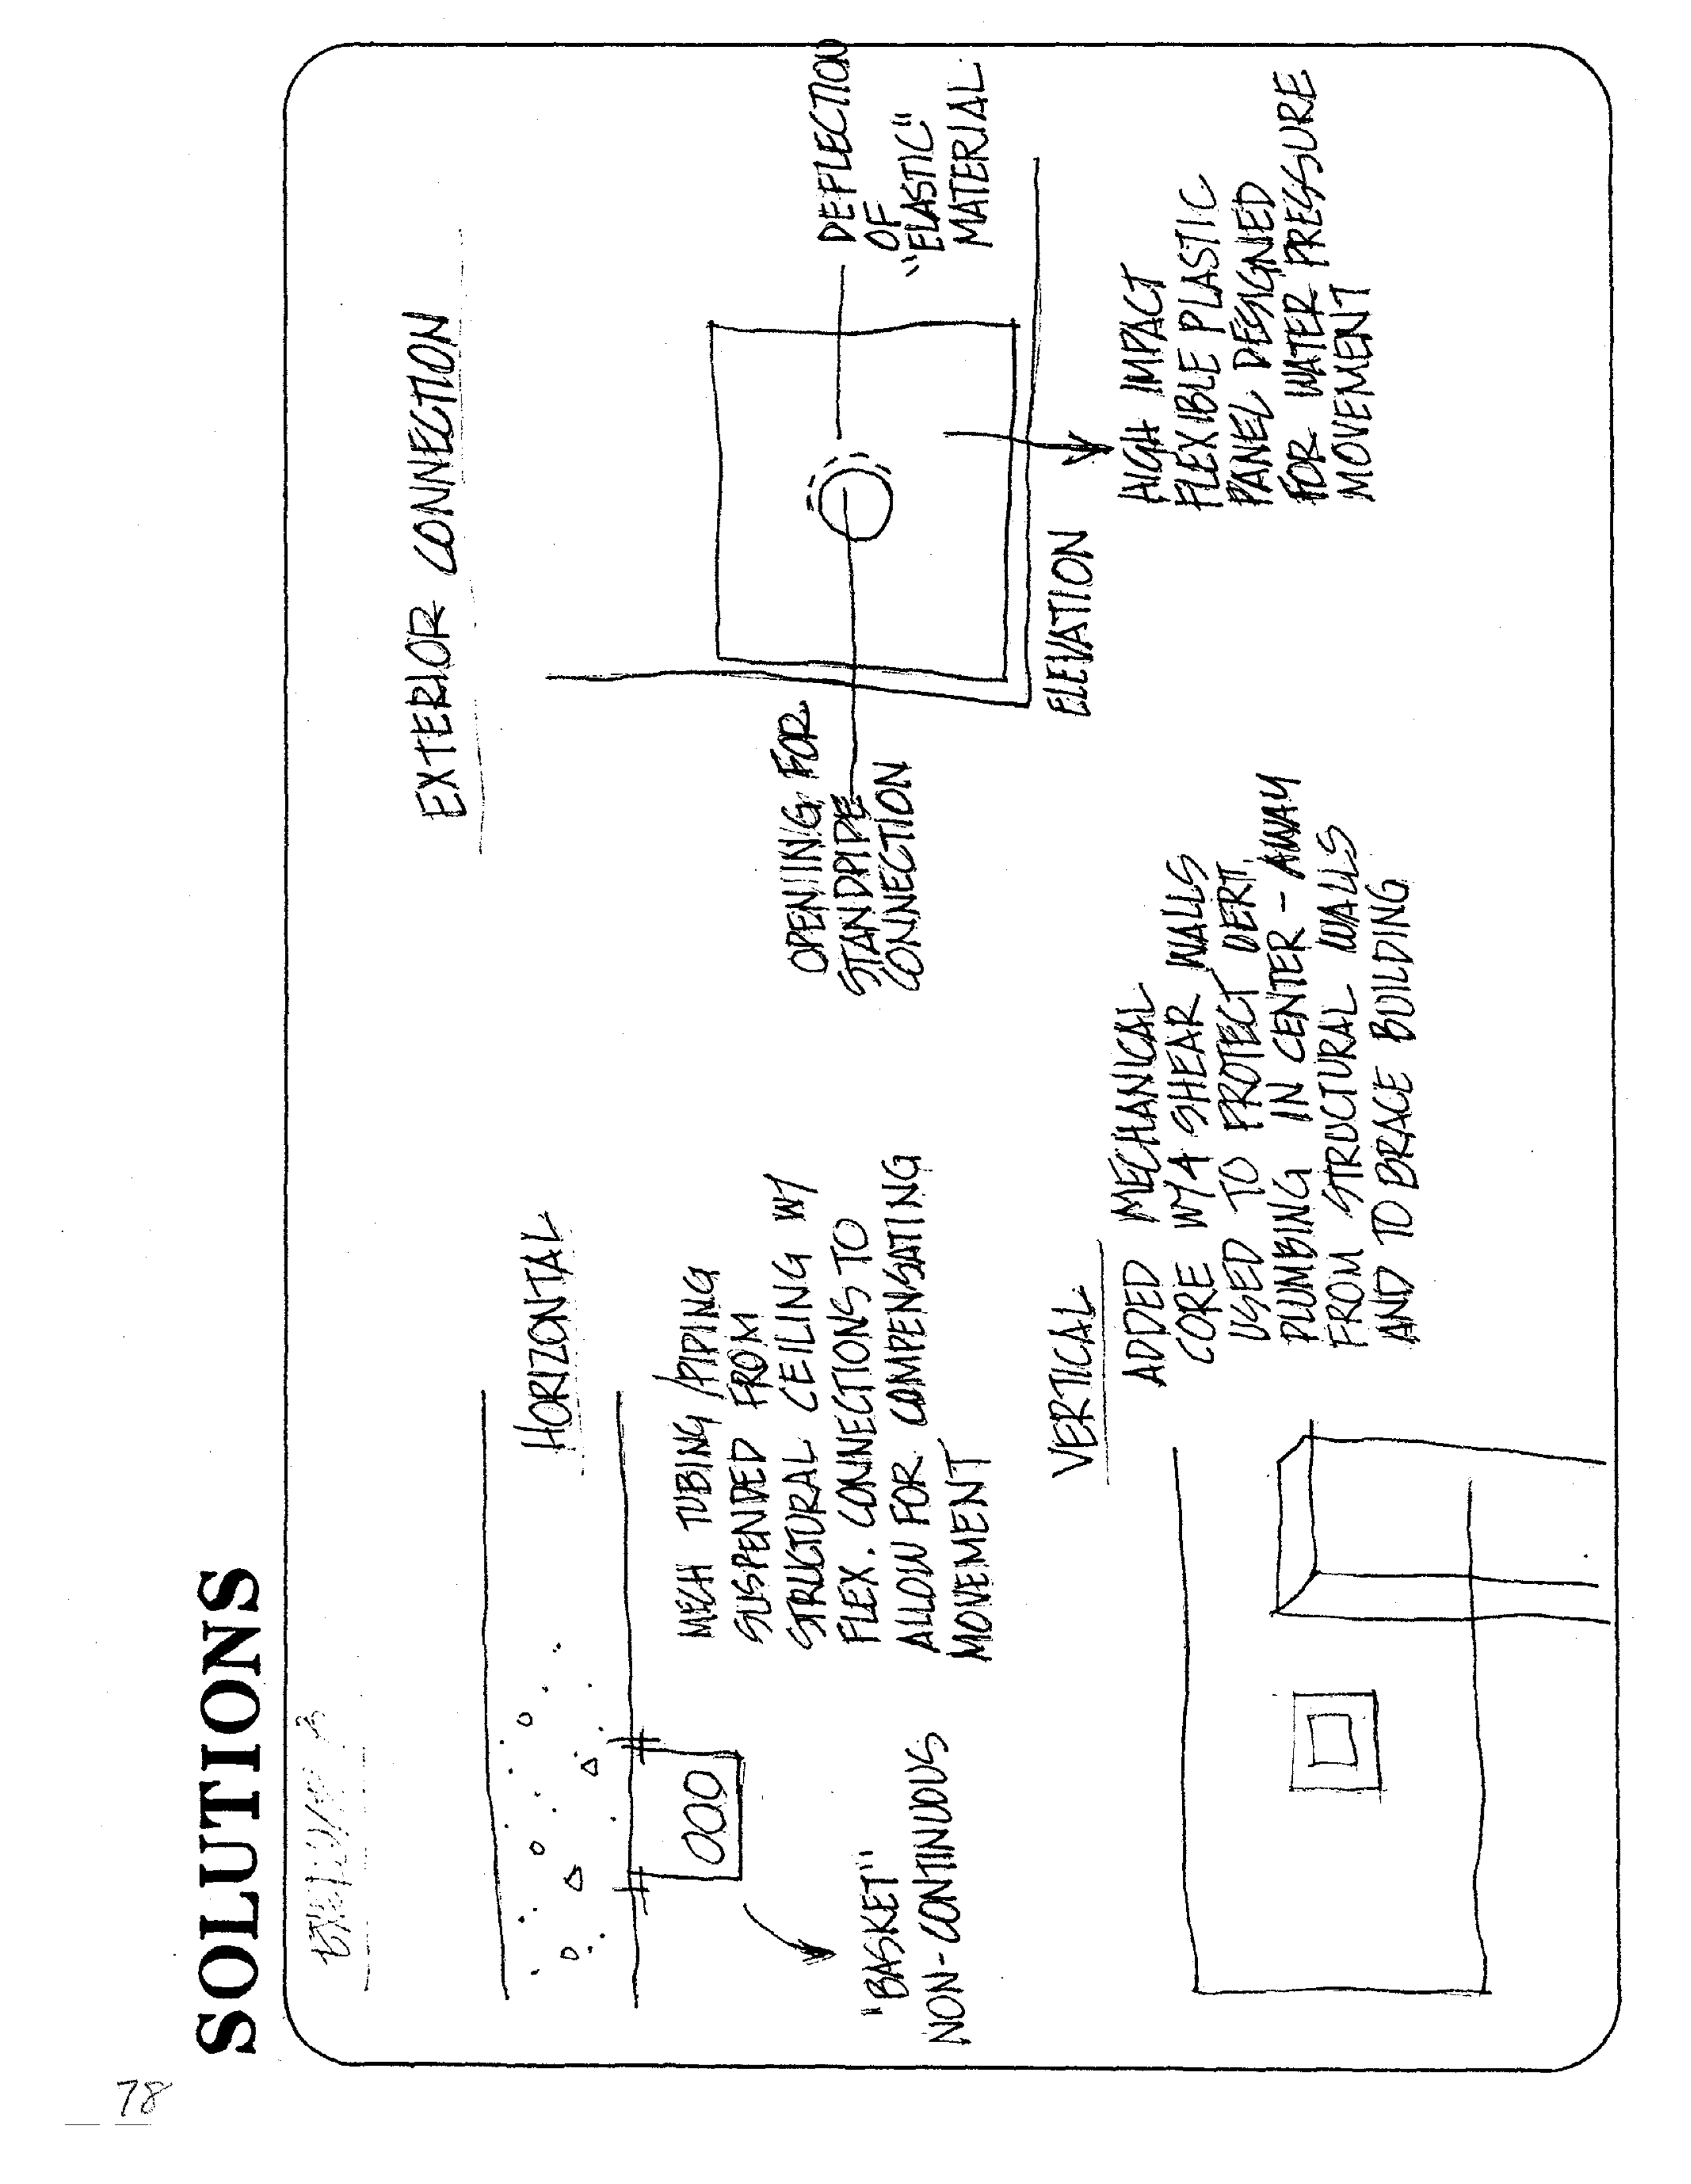 78
SOLUTIONS
HORIZONTAL
MECH TUBING/PIPING
SUSPENDED FROM
STRUCTURAL CEILING W/
FLEX. CONNECTIONS TO
ALLOW FOR COMPENSATING
MOVEMENT
"BASKET"
NON-CONTINUOUS
VERTICAL
ADDED MECHANICAL
CORE W/4 SHEAR WALLS
USED TO PROTECT VERT.
PLUMBING IN CENTER - AWAY
FROM STRUCTURAL WALLS
AND TO BRACE BUILDING
EXTERIOR CONNECTION
OPENING FOR
STANDPIPE
CONNECTION
DEFLECTION
OF
"ELASTIC"
MATERIAL
ELEVATION
HIGH IMPACT
FLEXIBLE PLASTIC
PANEL DESIGNED
FOR WATER PRESSURE
MOVEMENT